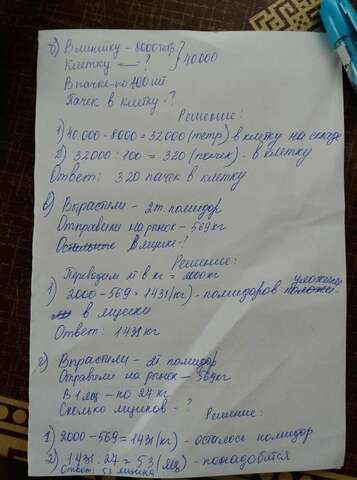 б) В линейку - 8000 тетр } 40000
Клетку — ?
В пачке - по 100 шт
Пачек в клетку - ?
Решение:
1) 40.000 - 8000 = 32000 (тетр) в клетку на складе
2) 32000 : 100 = 320 (пачек) - в клетку
Ответ: 320 пачек в клетку
в) Вырастили - 2т. помидор
Отправили на рынок - 569кг
В ящике - ?
Решение:
Переводим т в кг = 2000кг
1) 2000 - 569 = 1431 (кг) - помидоров уложено
в ящики
Ответ: 1431кг
г) Вырастили - 2т. помидор
Отправили на рынок - 569кг
В 1 ящ - по 27 кг
Сколько ящиков - ?
Решение:
1) 2000 - 569 = 1431 (кг) - осталось помидор
2) 1431 : 27 = 53 (ящ) - понадобится
Ответ: 53 ящика